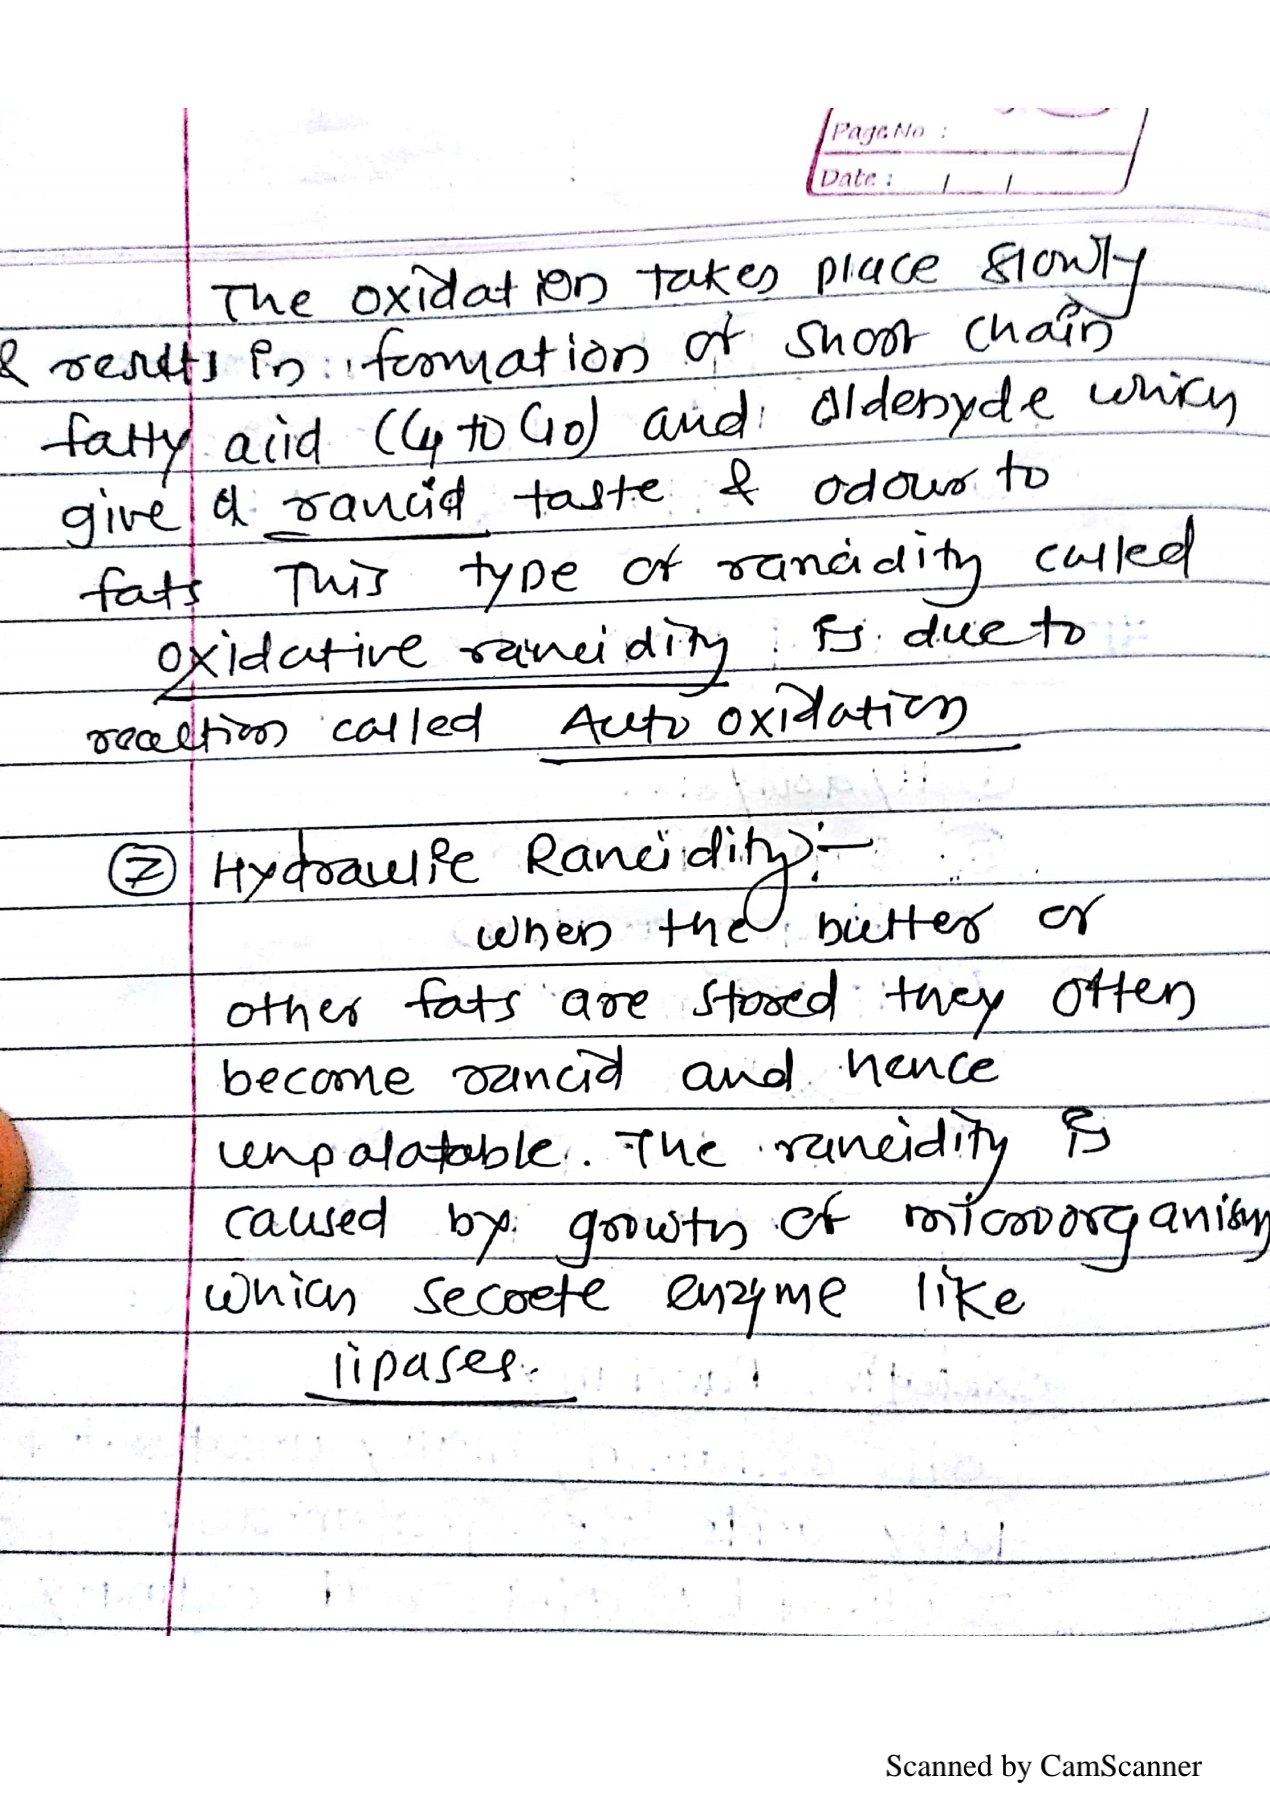 Page No :
Date : / /
The oxidation takes place slowly
& results in formation of short chain
fatty acid (C4 to C10) and aldehyde which
give a rancid taste & odour to
fats This type of rancidity called
oxidative rancidity is due to
reaction called Auto oxidation
② Hydraulic Rancidity :-
when the butter or
other fats are stored they often
become rancid and hence
unpalatable. The rancidity is
caused by growth of microorganism
which secrete enzyme like
lipases.
Scanned by CamScanner